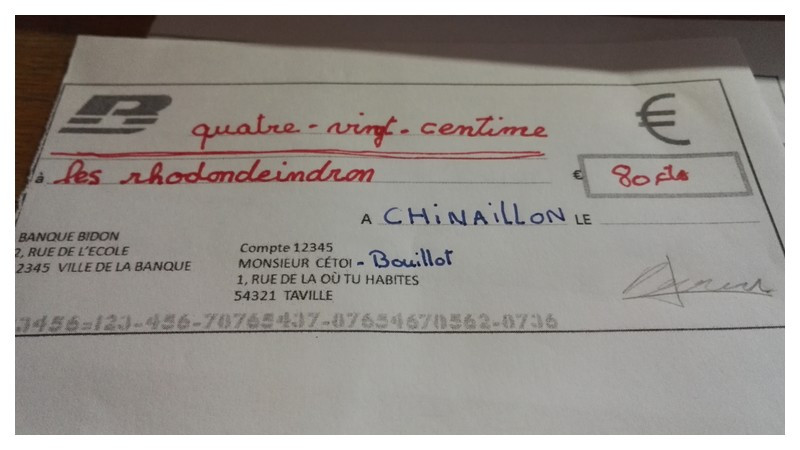 B
€
quatre-vingt-centime
à les rhodondeindron
€ 80 cts
A CHINAILLON LE
BANQUE BIDON
2, RUE DE L'ECOLE
2345 VILLE DE LA BANQUE
Compte 12345
MONSIEUR CÉTOI - Bouillot
1, RUE DE LA OÙ TU HABITES
54321 TAVILLE
3456=123-456-78765437-87654678562-8736